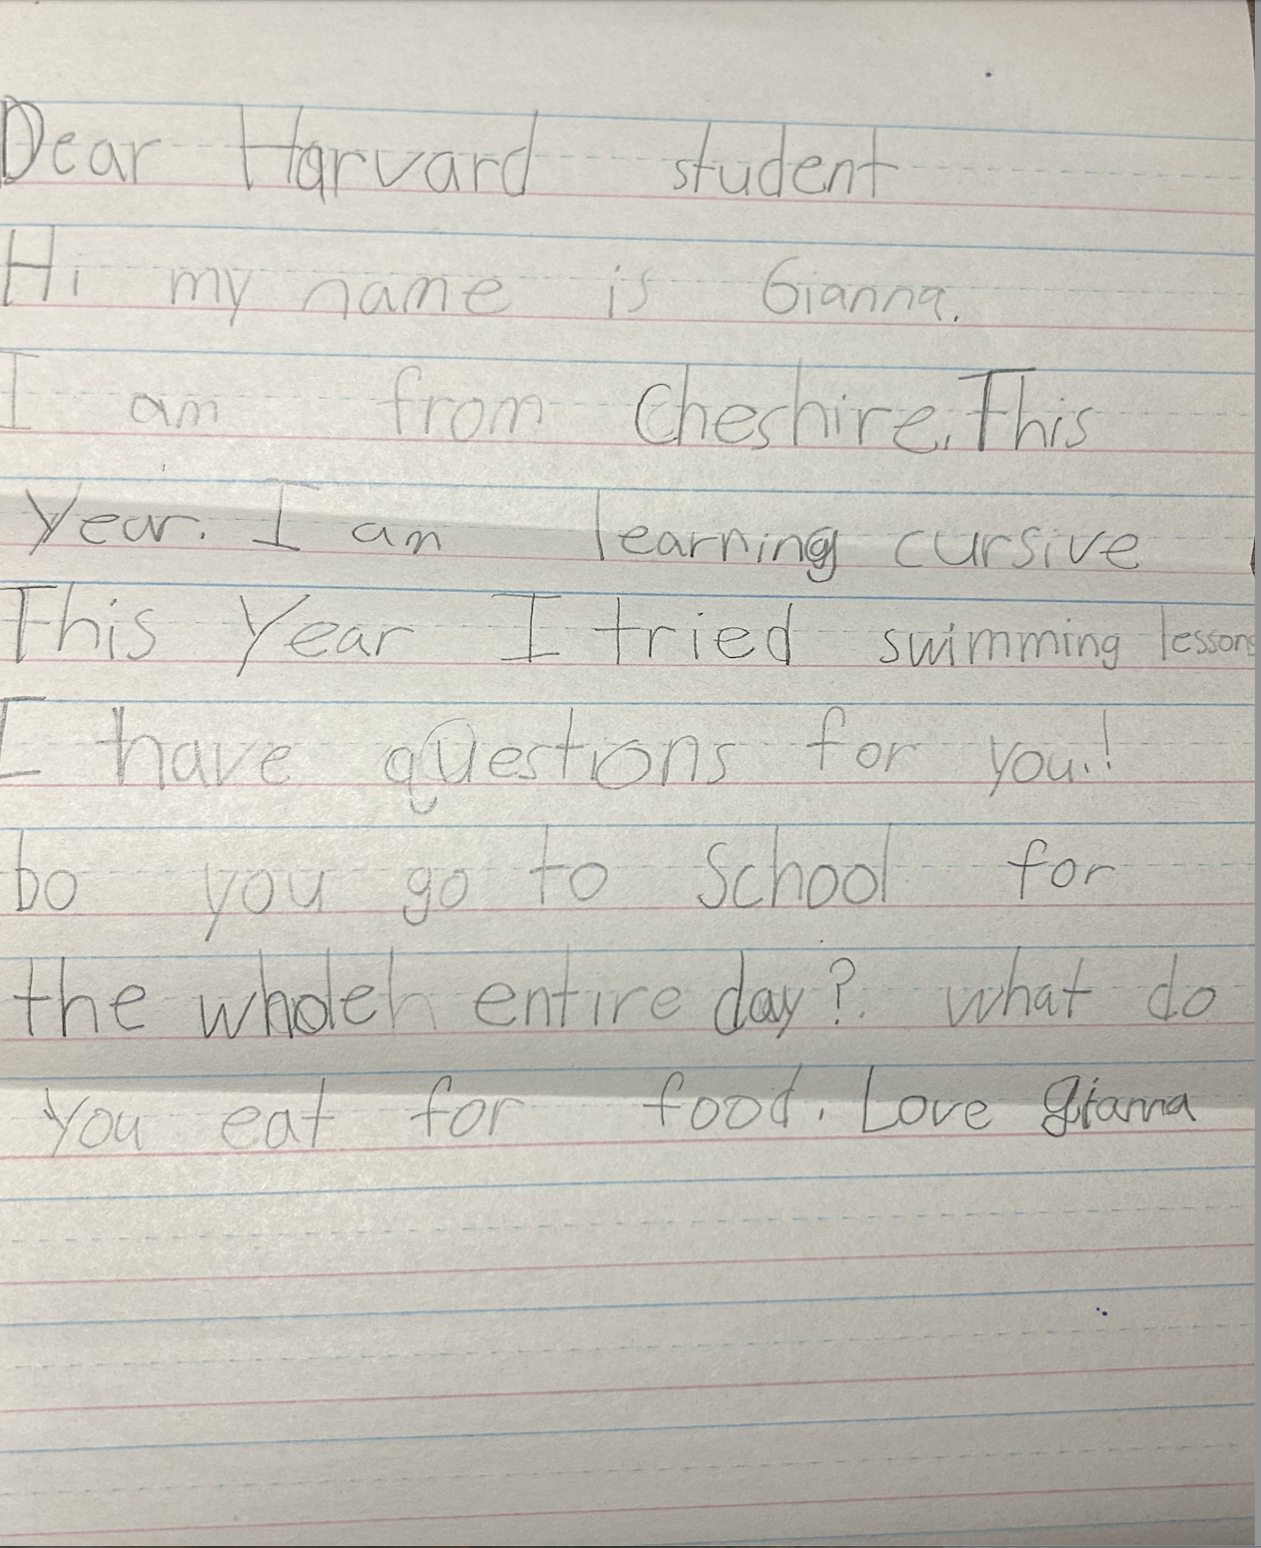 Dear Harvard student
Hi my name is Gianna.
I am from Cheshire. This
Year. I am learning cursive
This Year I tried swimming lessons
I have questions for you.!
bo you go to School for
the whole entire day? what do
you eat for food. Love Gianna